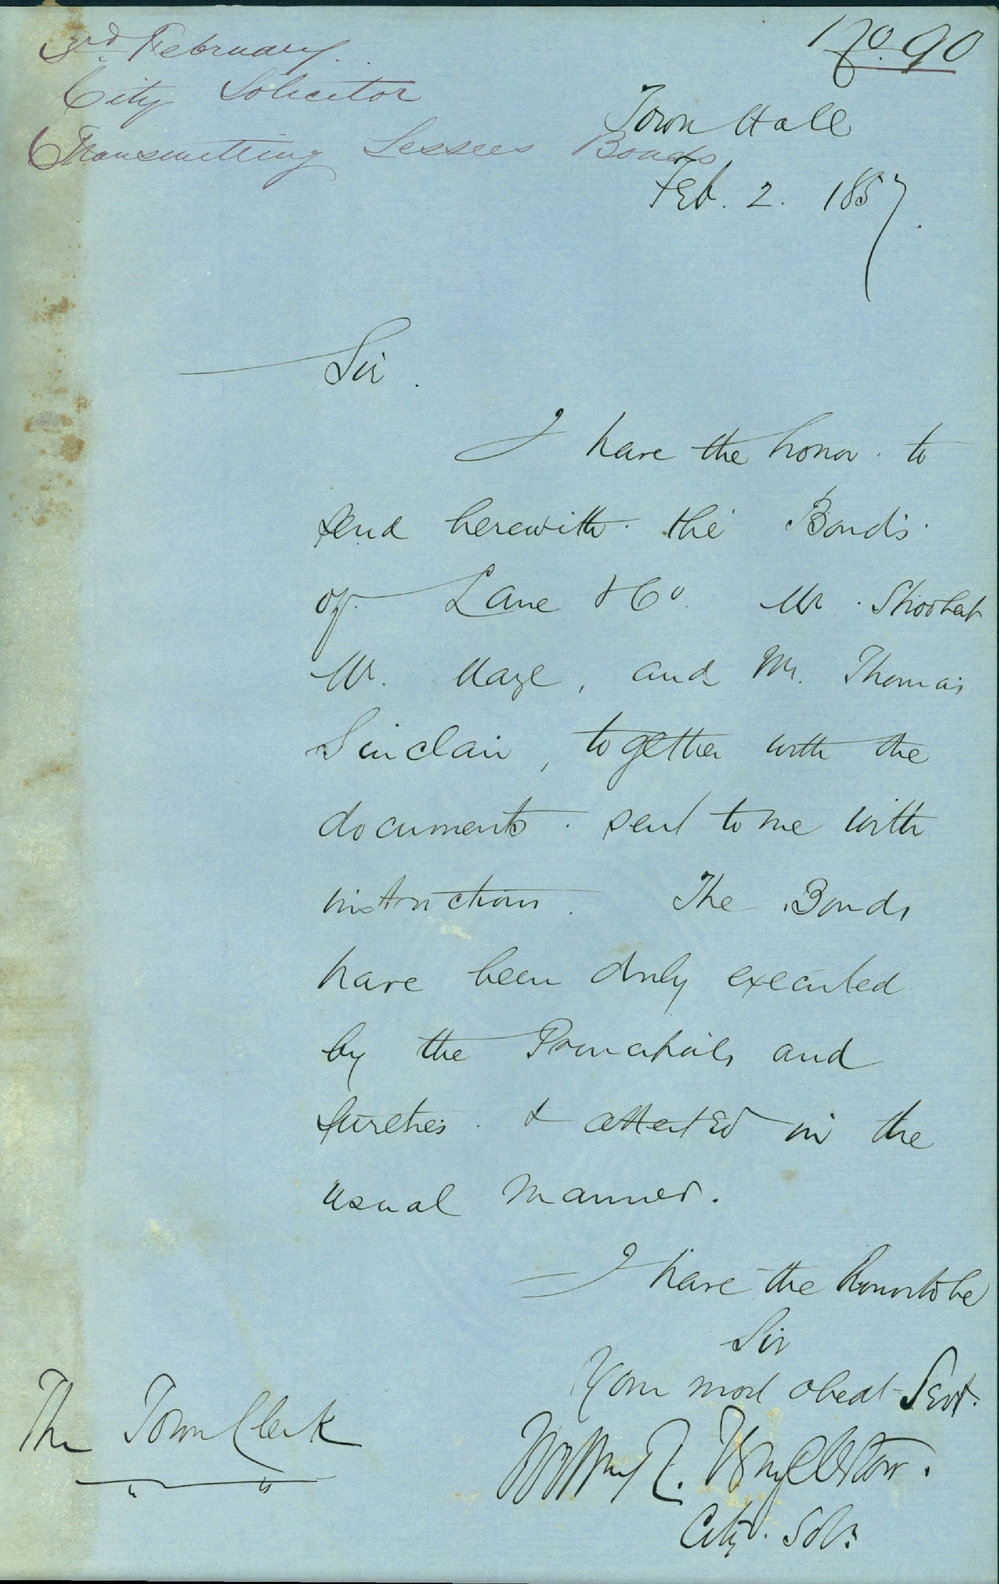 No 90
3rd February.
City Solicitor
Transmitting Lessees Bonds
Town Hall
Feb. 2. 1857.
Sir.
I have the honor to
send herewith the Bonds
of Lane & Co. Mr.
Mr. Maze, and Mr. Thomas
Sinclair, together with the
documents sent to me with
instructions. The Bonds
have been duly executed
by the Principals and
sureties & attested in the
usual manner.
I have the honor to be
Sir
Your most obedt Servt.
City Solr.
The Town Clerk